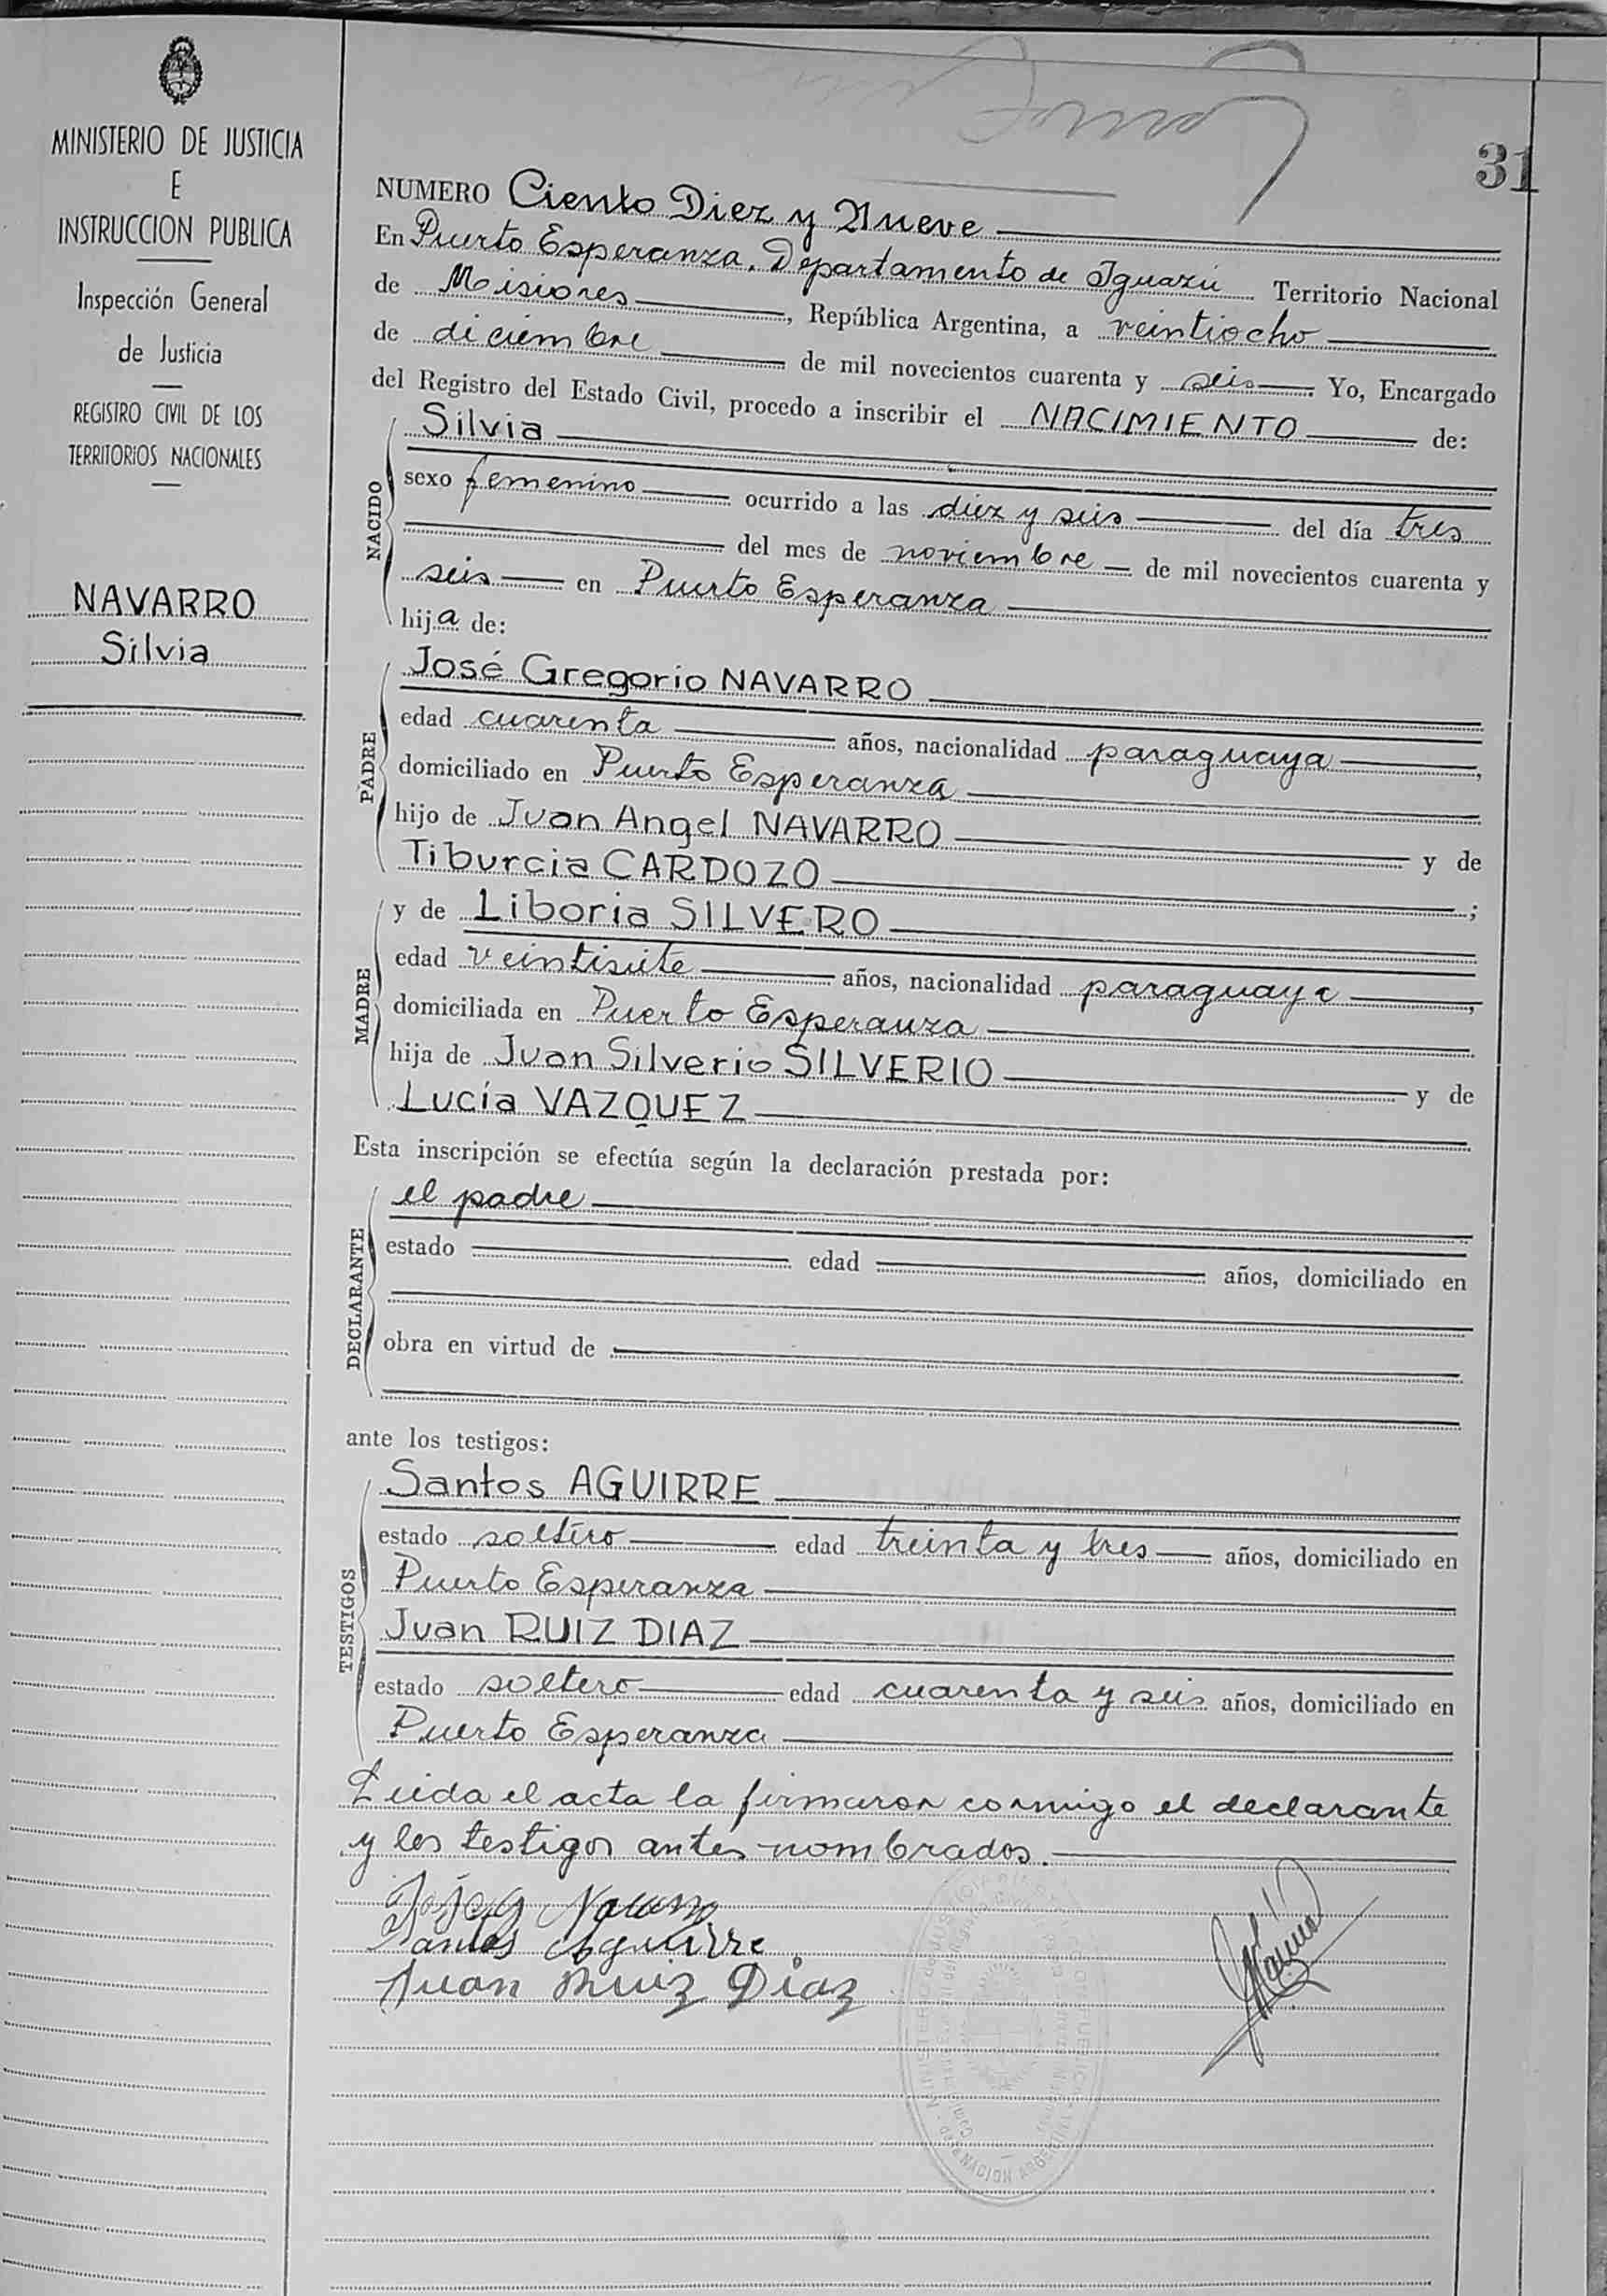 MINISTERIO DE JUSTICIA
E
INSTRUCCION PUBLICA
Inspección General
de Justicia
REGISTRO CIVIL DE LOS
TERRITORIOS NACIONALES
NAVARRO
Silvia
31
NUMERO Ciento Diez y Nueve
En Puerto Esperanza, Departamento de Iguazú Territorio Nacional
de Misiones, República Argentina, a veintiocho
de diciembre de mil novecientos cuarenta y seis Yo, Encargado
del Registro del Estado Civil, procedo a inscribir el NACIMIENTO de:
NACIDO
Silvia
sexo femenino ocurrido a las diez y seis del día tres
del mes de noviembre de mil novecientos cuarenta y
seis en Puerto Esperanza
hija de:
PADRE
José Gregorio NAVARRO
edad cuarenta años, nacionalidad paraguaya,
domiciliado en Puerto Esperanza
hijo de Juan Angel NAVARRO y de
Tiburcia CARDOZO;
MADRE
y de Liboria SILVERO
edad veintisiete años, nacionalidad paraguaya,
domiciliada en Puerto Esperanza
hija de Juan Silverio SILVERIO y de
Lucía VAZQUEZ
Esta inscripción se efectúa según la declaración prestada por:
DECLARANTE
el padre
estado edad años, domiciliado en
obra en virtud de
ante los testigos:
TESTIGOS
Santos AGUIRRE
estado soltero edad treinta y tres años, domiciliado en
Puerto Esperanza
Juan RUIZ DIAZ
estado soltero edad cuarenta y seis años, domiciliado en
Puerto Esperanza
Leida el acta la firmaron conmigo el declarante
y los testigos antes nombrados.
José G Navarro
Santos Aguirre
Juan Ruiz Diaz